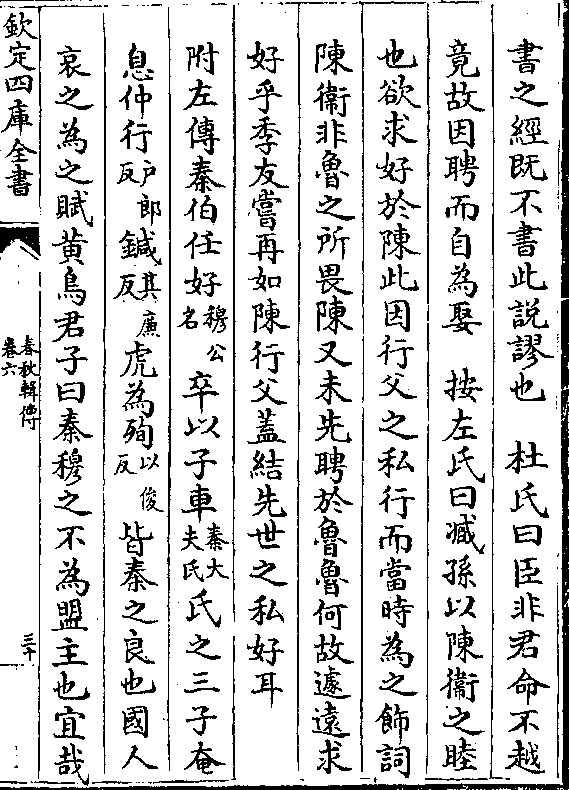 書之經既不書此説謬也　杜氏曰臣非君命不越
竟故因聘而自為娶　按左氏曰臧孫以陳衞之睦
也欲求好於陳此因行父之私行而當時為之飾詞
陳衞非魯之所畏陳又未先聘於魯魯何故遽遠求
好乎季友嘗再如陳行父蓋結先世之私好耳
附左傳秦伯任好穆公名卒以子車秦大夫氏氏之三子奄
息仲行户郎反鍼其廉反虎為殉以俊反皆秦之良也國人
哀之為之賦黄鳥君子曰秦穆之不為盟主也宜哉
欽定四庫全書
春秋輯傳
卷六
三十